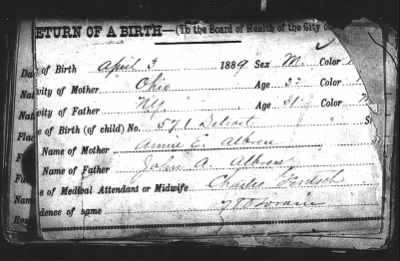 ETURN OF A BIRTH—(To the Board of Health of the City
of Birth April 3 1889 Sex M. Color
vity of Mother Ohio Age 32 Color
vity of Father NY. Age 31 Color
e of Birth (of child) No. 571 Detroit
Name of Mother Annie E.
Name of Father John A.
e of Medical Attendant or Midwife Charles
dence of same Lorain